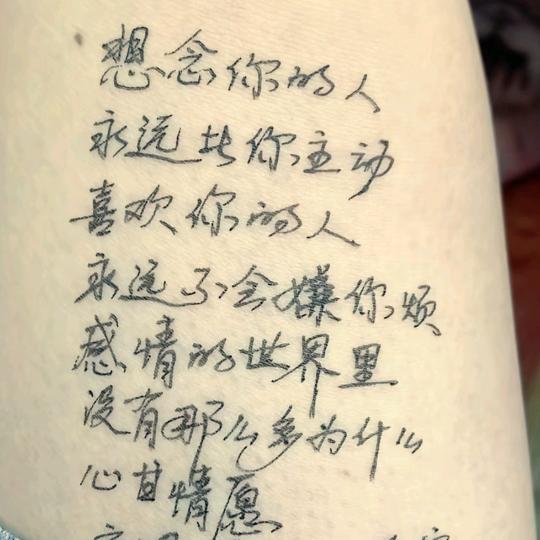 想念你的人
永远比你主动
喜欢你的人
永远不会嫌你烦
感情的世界里
没有那么多为什么
心甘情愿